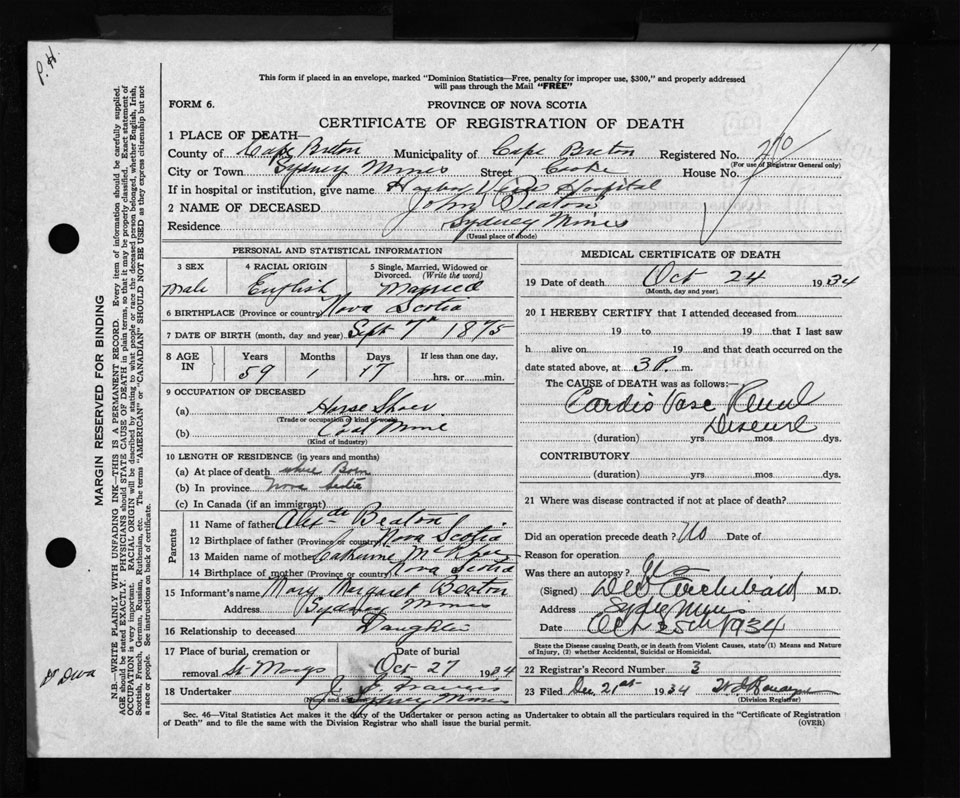 P. H.
This form if placed in an envelope, marked "Dominion Statistics—Free, penalty for improper use, $300," and properly addressed
will pass through the Mail "FREE"
FORM 6.
PROVINCE OF NOVA SCOTIA
CERTIFICATE OF REGISTRATION OF DEATH
1 PLACE OF DEATH—
County of Cape Breton Municipality of Cape Breton Registered No.
(For use of Registrar General only)
City or Town Sydney Mines Street Cooke House No.
If in hospital or institution, give name Harbor View Hospital
2 NAME OF DECEASED John Beaton
Residence Sydney Mines
(Usual place of abode)
PERSONAL AND STATISTICAL INFORMATION
3 SEX 4 RACIAL ORIGIN 5 Single, Married, Widowed or Divorced. (Write the word)
Male English Married
6 BIRTHPLACE (Province or country) Nova Scotia
7 DATE OF BIRTH (month, day and year) Sept 7th 1875
8 AGE IN Years Months Days If less than one day,
59 1 17 hrs. or min.
9 OCCUPATION OF DECEASED
(a) Horse Shoer
(Trade or occupation or kind of work)
(b) Coal Mine
(Kind of industry)
10 LENGTH OF RESIDENCE (in years and months)
(a) At place of death where Born
(b) In province Nova Scotia
(c) In Canada (if an immigrant)
Parents
11 Name of father Alexdr Beaton
12 Birthplace of father (Province or country) Nova Scotia
13 Maiden name of mother Catherine
14 Birthplace of mother (Province or country) Nova Scotia
15 Informant's name Mary Margaret Beaton
Address Sydney Mines
16 Relationship to deceased Daughter
17 Place of burial, cremation or removal St Marys Date of burial Oct 27 1934
18 Undertaker J.
(Name and address) Sydney Mines
MEDICAL CERTIFICATE OF DEATH
19 Date of death Oct 24 1934
(Month, day and year)
20 I HEREBY CERTIFY that I attended deceased from
19 to 19 that I last saw
h alive on 19 and that death occurred on the
date stated above, at 3 P. m.
The CAUSE of DEATH was as follows:
Cardio Vasc Renal
Disease
(duration) yrs. mos. dys.
CONTRIBUTORY
(duration) yrs. mos. dys.
21 Where was disease contracted if not at place of death?
Did an operation precede death? No Date of
Reason for operation
Was there an autopsy?
(Signed) Archibald M.D.
Address Sydney Mines
Date Oct 25th 1934
State the Disease causing Death, or in death from Violent Causes, state (1) Means and Nature
of Injury, (2) whether Accidental, Suicidal or Homicidal.
22 Registrar's Record Number 3
23 Filed Dec 21st 1934
(Division Registrar)
Sec. 46—Vital Statistics Act makes it the duty of the Undertaker or person acting as Undertaker to obtain all the particulars required in the "Certificate of Registration
of Death" and to file the same with the Division Registrar who shall issue the burial permit. (OVER)
MARGIN RESERVED FOR BINDING
N.B.—WRITE PLAINLY WITH UNFADING INK—THIS IS A PERMANENT RECORD. Every item of information should be carefully supplied.
AGE should be stated EXACTLY. PHYSICIANS should STATE CAUSE OF DEATH in plain terms, so that it may be properly classified. Exact statement of
OCCUPATION is very important. RACIAL ORIGIN will be described by stating to what people or race the deceased person belonged, whether English, Irish,
Scottish, French, German, Russian, Ruthenian, etc. The terms "AMERICAN" or "CANADIAN" SHOULD NOT BE USED as they express citizenship but not
a race or people. See instructions on back of certificate.